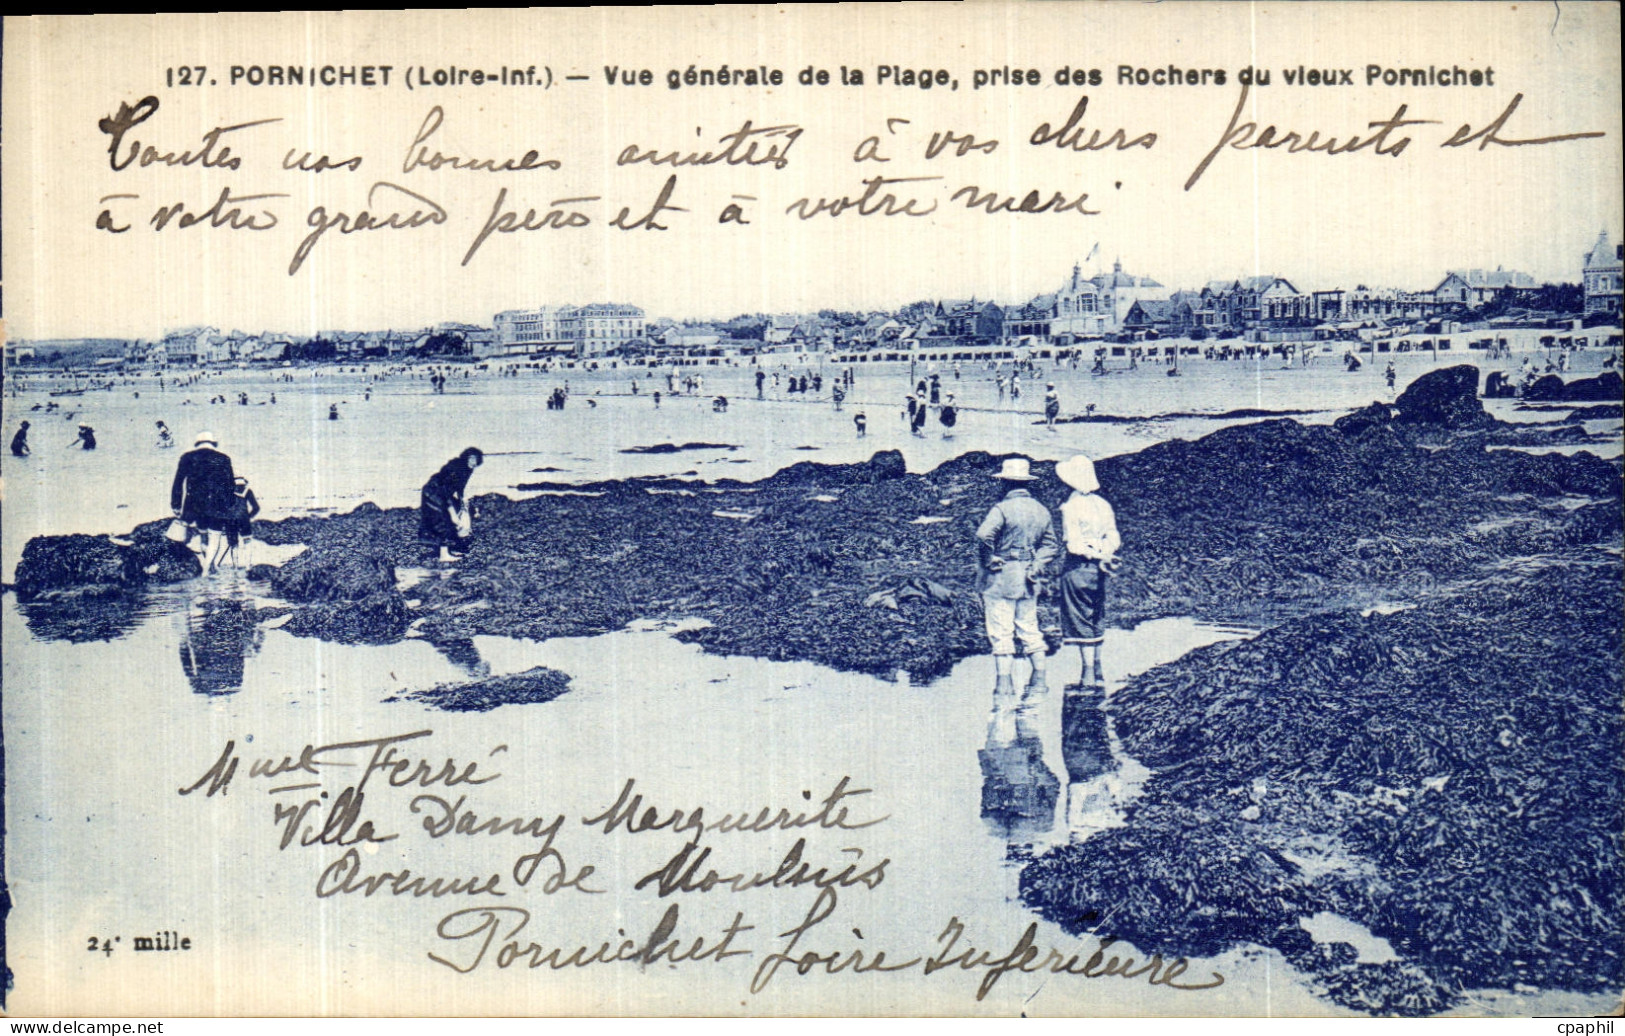 127. PORNICHET (Loire-Inf.) — Vue générale de la Plage, prise des Rochers du vieux Pornichet
Toutes nos bonnes amitiés à vos chers parents et
à votre grand père et à votre mari
Mme Ferré
Villa Dany Marguerite
Avenue de Moulins
Pornichet Loire Inférieure
24e mille
www.delcampe.net
cpaphil